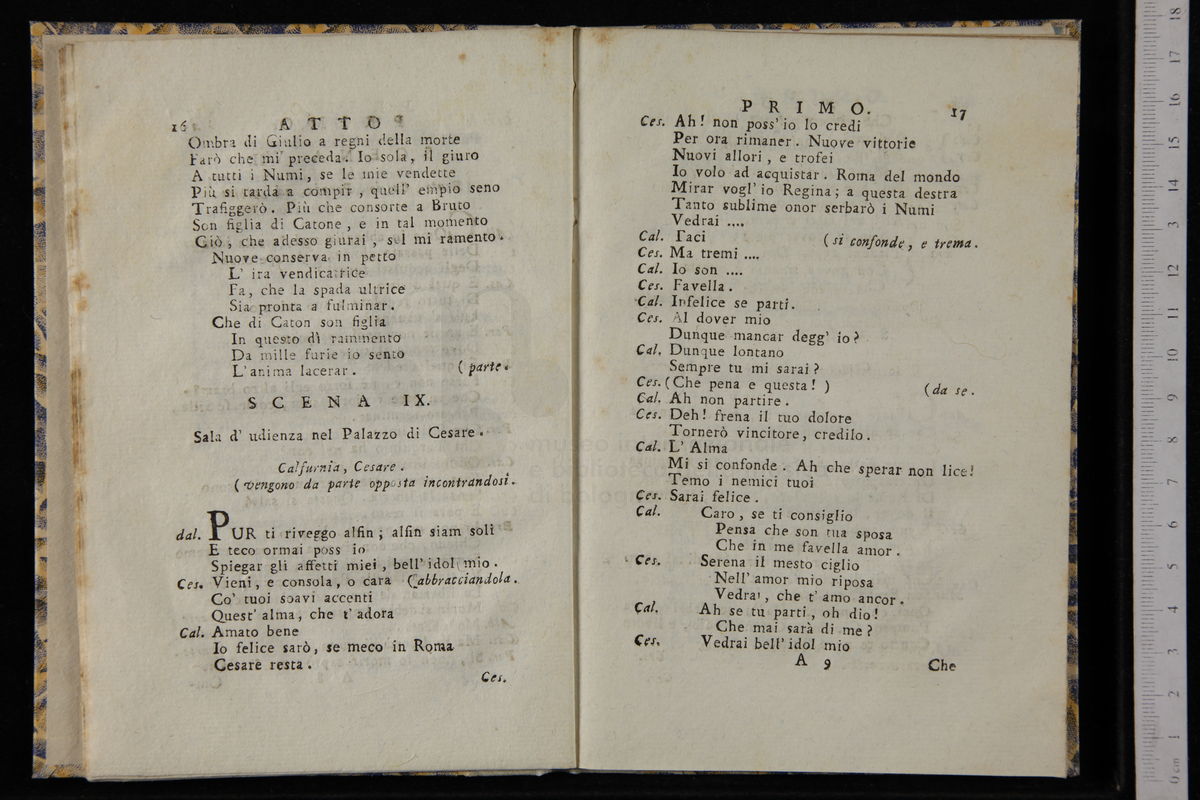 16 ATTO
Ombra di Giulio a regni della morte
Farò che mi preceda. Io sola, il giuro
A tutti i Numi, se le mie vendette
Più si tarda a compir, quell' empio seno
Trafiggerò. Più che consorte a Bruto
Son figlia di Catone, e in tal momento
Ciò, che adesso giurai, sol mi ramento.
Nuove conserva in petto
L' ira vendicatrice
Fa, che la spada ultrice
Sia pronta a fulminar.
Che di Caton son figlia
In questo dì rammento
Da mille furie io sento
L'anima lacerar. (parte.
SCENA IX.
Sala d' udienza nel Palazzo di Cesare.
Calfurnia, Cesare.
(vengono da parte opposta incontrandosi.
dal. PUR ti riveggo alfin; alfin siam soli
E teco ormai poss io
Spiegar gli affetti miei, bell' idol mio.
Ces. Vieni, e consola, o cara (abbracciandola.
Co' tuoi soavi accenti
Quest' alma, che t' adora
Cal. Amato bene
Io felice sarò, se meco in Roma
Cesare resta.
Ces.
PRIMO. 17
Ces. Ah! non poss' io lo credi
Per ora rimaner. Nuove vittorie
Nuovi allori, e trofei
Io volo ad acquistar. Roma del mondo
Mirar vogl' io Regina; a questa destra
Tanto sublime onor serbarò i Numi
Vedrai ....
Cal. Taci (si confonde, e trema.
Ces. Ma tremi ....
Cal. Io son ....
Ces. Favella.
Cal. Infelice se parti.
Ces. Al dover mio
Dunque mancar degg' io?
Cal. Dunque lontano
Sempre tu mi sarai?
Ces. (Che pena e questa! ) (da se.
Cal. Ah non partire.
Ces. Deh! frena il tuo dolore
Tornerò vincitore, credilo.
Cal. L' Alma
Mi si confonde. Ah che sperar non lice!
Temo i nemici tuoi
Ces. Sarai felice.
Cal. Caro, se ti consiglio
Pensa che son tua sposa
Che in me favella amor.
Ces. Serena il mesto ciglio
Nell' amor mio riposa
Vedrai, che t' amo ancor.
Cal. Ah se tu parti, oh dio!
Che mai sarà di me?
Ces. Vedrai bell' idol mio
A 9 Che